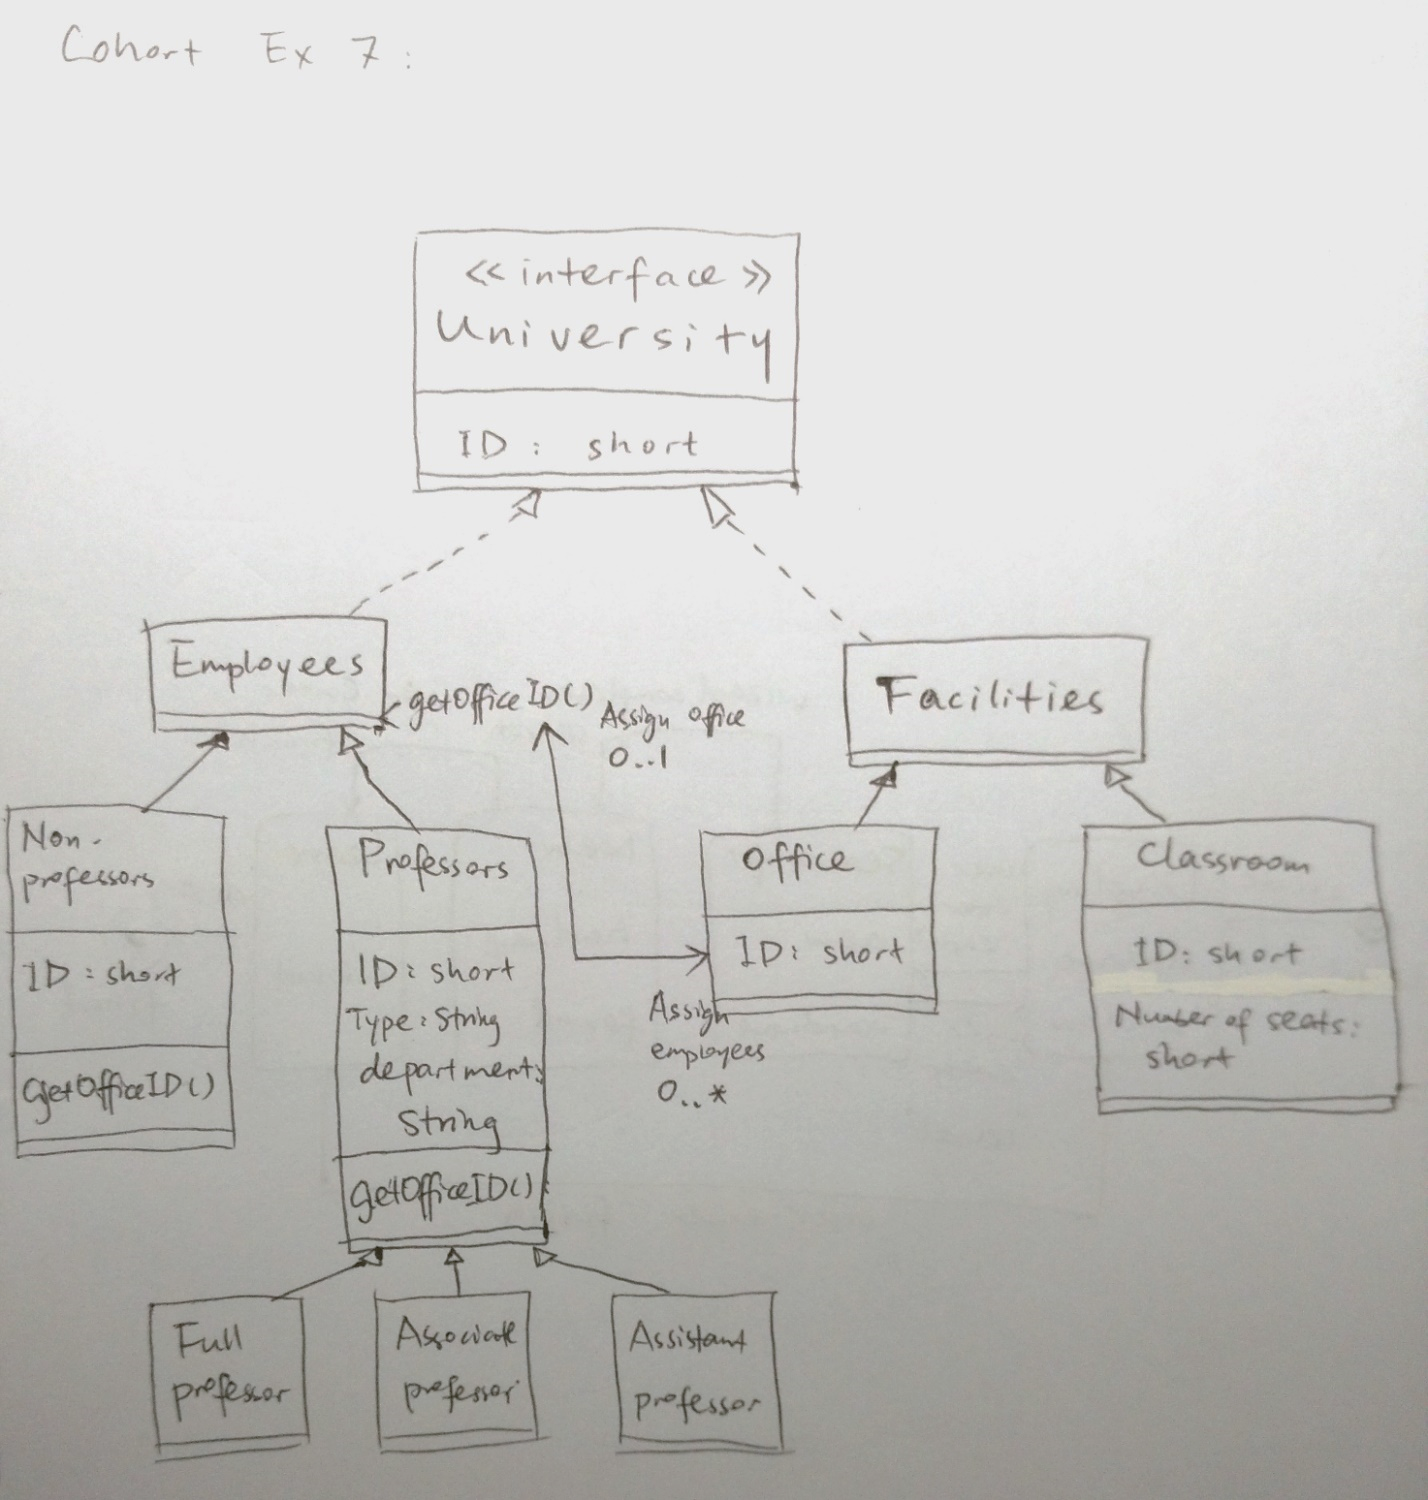 Cohort Ex 7:
<< interface >>
University
ID : short
Employees
getOfficeID()
Assign office
0..1
Facilities
Non-
professors
ID : short
getOfficeID()
Professors
ID : short
Type : String
department :
String
getOfficeID()
Office
ID : short
Assign
employees
0..*
Classroom
ID : short
Number of seats :
short
Full
professor
Associate
professor
Assistant
professor